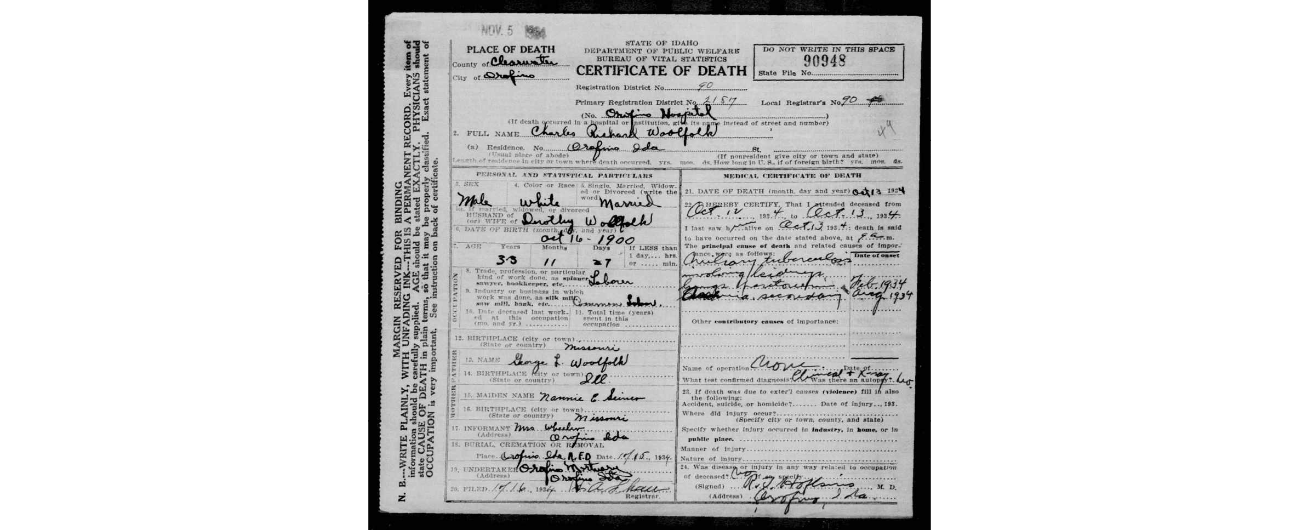 NOV. 5
MARGIN RESERVED FOR BINDING
N. B.—WRITE PLAINLY, WITH UNFADING INK—THIS IS A PERMANENT RECORD. Every item of
information should be carefully supplied. AGE should be stated EXACTLY. PHYSICIANS should
state CAUSE OF DEATH in plain terms, so that it may be properly classified. Exact statement of
OCCUPATION is very important. See instruction on back of certificate.
PLACE OF DEATH
County of Clearwater
City of Orofino
STATE OF IDAHO
DEPARTMENT OF PUBLIC WELFARE
BUREAU OF VITAL STATISTICS
CERTIFICATE OF DEATH
DO NOT WRITE IN THIS SPACE
90948
State File No.
Registration District No. 90
Primary Registration District No. 2157 Local Registrar's No. 90
(No. Orofino Hospital)
(If death occurred in a hospital or institution, give its name instead of street and number)
2. FULL NAME Charles Richard Woolfolk
49
(a) Residence. No. Orofino Ida St.
(Usual place of abode) (If nonresident give city or town and state)
Length of residence in city or town where death occurred. yrs. mos. ds. How long in U. S., if of foreign birth? yrs. mos. ds.
PERSONAL AND STATISTICAL PARTICULARS
3. SEX 4. Color or Race 5. Single, Married, Widowed or Divorced (write the word)
Male White Married
5a. If married, widowed, or divorced
HUSBAND of
(or) WIFE of Dorothy Woolfolk
6. DATE OF BIRTH (month, day, and year)
Oct 16 - 1900
7. AGE Years Months Days If LESS than
1 day, hrs.
33 11 27 or min.
OCCUPATION
8. Trade, profession, or particular
kind of work done, as spinner,
sawyer, bookkeeper, etc. Laborer
9. Industry or business in which
work was done, as silk mill,
saw mill, bank, etc. Common Labor
10. Date deceased last worked at this occupation (mo. and yr.) 11. Total time (years) spent in this occupation
12. BIRTHPLACE (city or town)
(State or country) Missouri
FATHER
13. NAME George L. Woolfolk
14. BIRTHPLACE (city or town)
(State or country) Ill
MOTHER
15. MAIDEN NAME Nannie E.
16. BIRTHPLACE (city or town)
(State or country) Missouri
17. INFORMANT Mrs Wheeler
(Address) Orofino Ida
18. BURIAL, CREMATION OR REMOVAL
Place Orofino Ida R.F.D. Date 10/15, 1934
19. UNDERTAKER Orofino Mortuary
(Address) Orofino Ida
20. FILED 10/16, 1934
Registrar.
MEDICAL CERTIFICATE OF DEATH
21. DATE OF DEATH (month, day and year) Oct 13 1934
22. I HEREBY CERTIFY, That I attended deceased from
Oct. 12 1934, to Oct. 13, 1934
I last saw h alive on Oct 13 1934; death is said
to have occurred on the date stated above, at m.
The principal cause of death and related causes of importance were as follows: Date of onset
tuberculosis
involving kidneys
lungs peritoneum Feb. 1934
secondary Aug 1934
Other contributory causes of importance:
Name of operation None Date of
What test confirmed diagnosis? Clinical + X-ray Was there an autopsy? No.
23. If death was due to exter'l causes (violence) fill in also
the following:
Accident, suicide, or homicide? Date of injury 193
Where did injury occur?
(Specify city or town, county, and state)
Specify whether injury occurred in industry, in home, or in
public place.
Manner of injury
Nature of injury
24. Was disease or injury in any way related to occupation
of deceased? No If so specify
(Signed) Hopkins M. D.
(Address) Orofino, Ida.